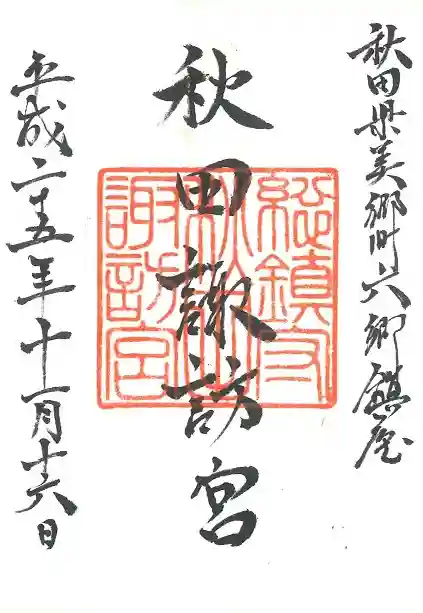 秋田県美郷町六郷鎮座
秋田諏訪宮
平成二十五年十一月十六日
総鎮守
諏訪宮